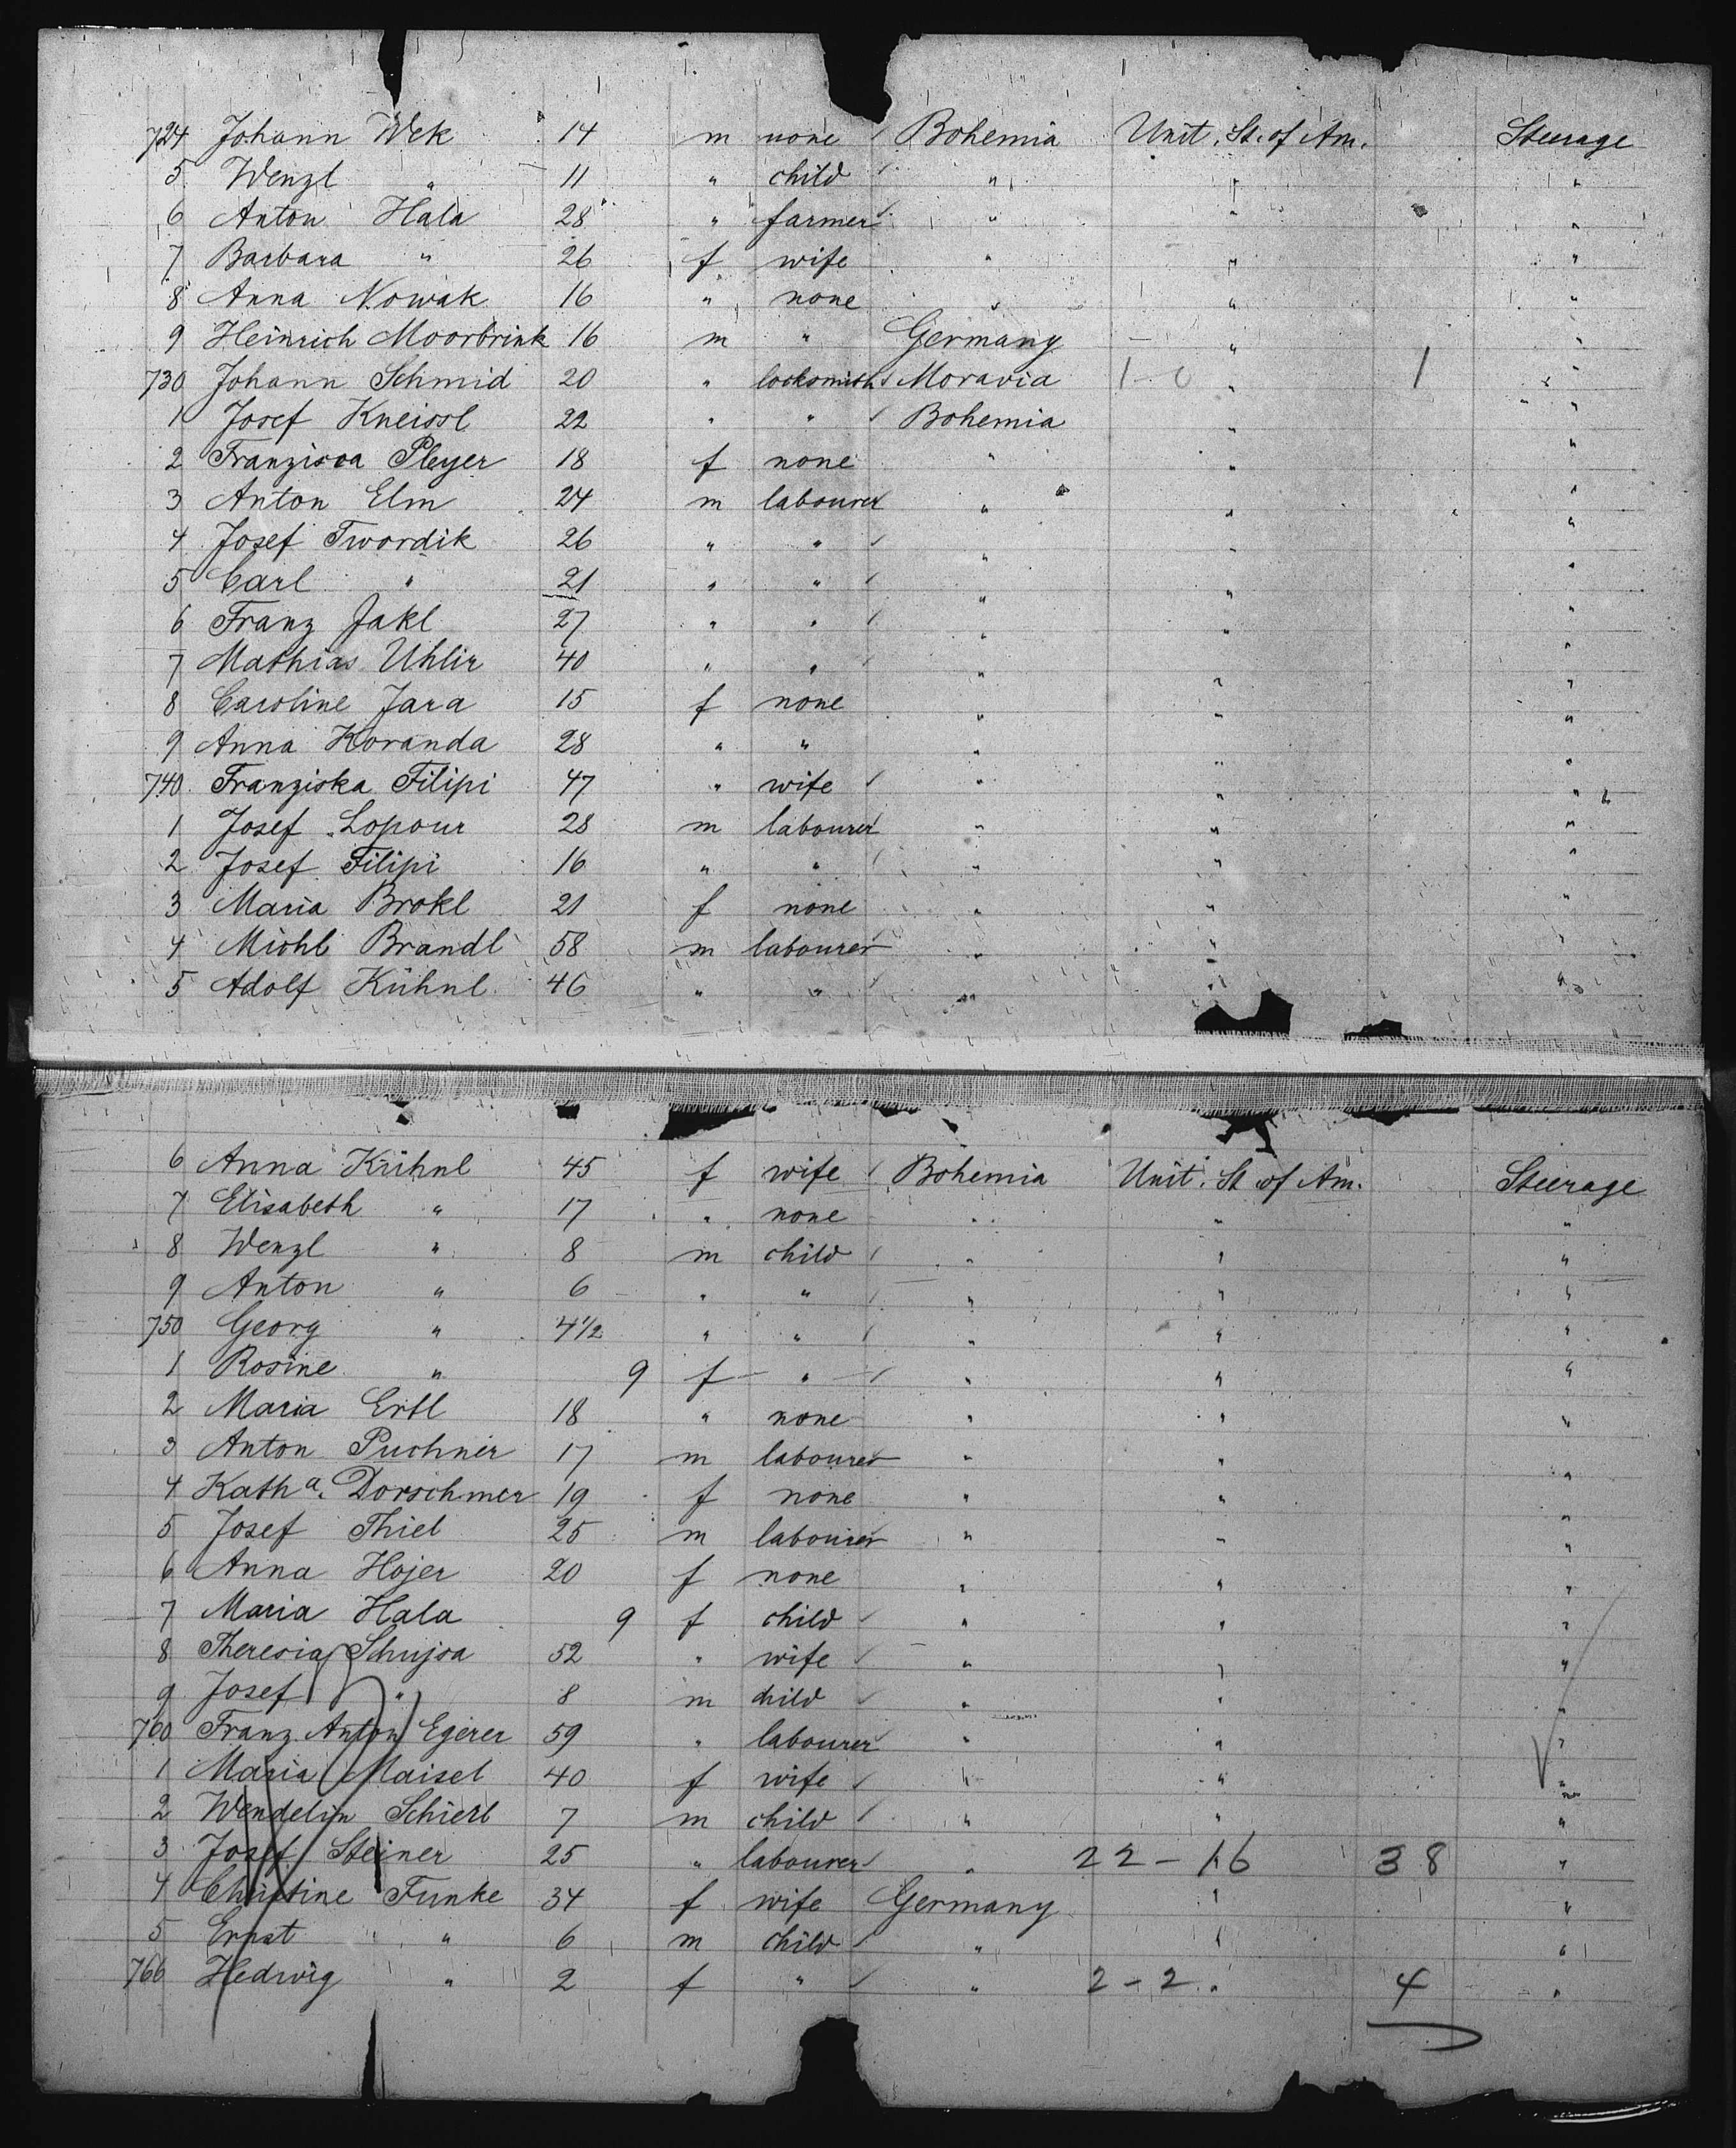 724 Johann Wek 14 m none Bohemia Unit. St. of Am. Steerage
5 Wenzl " 11 " child " " "
6 Anton Hala 28 " farmer " " "
7 Barbara " 26 f wife " " "
8 Anna Nowak 16 " none " " "
9 Heinrich Moorbrink 16 m " Germany " "
730 Johann Schmid 20 " locksmith Moravia 1 - 0 " 1 "
1 Josef Kneissl 22 " " Bohemia " "
2 Franzisca Pleyer 18 f none " " "
3 Anton Elm 24 m labourer " " "
4 Josef Twordik 26 " " " " "
5 Carl " 21 " " " " "
6 Franz Jakl 27 " " " " "
7 Mathias Uhlir 40 " " " " "
8 Caroline Jara 15 f none " " "
9 Anna Koranda 28 " " " " "
740 Franziska Filipi 47 " wife " " "
1 Josef Lopour 28 m labourer " " "
2 Josef Filipi 16 " " " " "
3 Maria Brokl 21 f none " " "
4 Michl Brandl 58 m labourer " " "
5 Adolf Kühnl 46 " " " " "
6 Anna Kühnl 45 f wife Bohemia Unit. St. of Am. Steerage
7 Elisabeth " 17 " none " " "
8 Wenzl " 8 m child " " "
9 Anton " 6 " " " " "
750 Georg " 4 1/2 " " " " "
1 Rosine " 9 f " " " "
2 Maria Ertl 18 " none " " "
3 Anton Puchner 17 m labourer " " "
4 Katha. Dorschmer 19 f none " " "
5 Josef Thiel 25 m labourer " " "
6 Anna Hojer 20 f none " " "
7 Maria Hala 9 f child " " "
8 Theresia Schujsa 52 " wife " " "
9 Josef " 8 m child " " "
760 Franz Anton Egerer 59 " labourer " " "
1 Maria Maisel 40 f wife " " "
2 Wendelin Schierl 7 m child " " "
3 Josef Steiner 25 " labourer " 22 - 16 38 "
4 Christine Funke 34 f wife Germany " "
5 Ernst " 6 m child " " "
766 Hedwig " 2 f " " 2 - 2 " 4 "